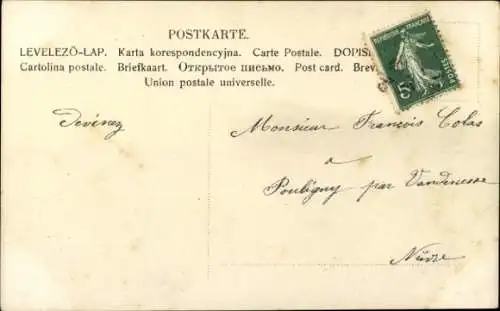 POSTKARTE.
LEVELEZŐ-LAP. Karta korespondencyjna. Carte Postale. DOPIS
Cartolina postale. Briefkaart. Открытое письмо. Post card. Brev
Union postale universelle.
RÉPUBLIQUE FRANÇAISE
POSTES
5
Devinez
Monsieur François Colas
à
Poubigny par Vandenesse
Nièvre